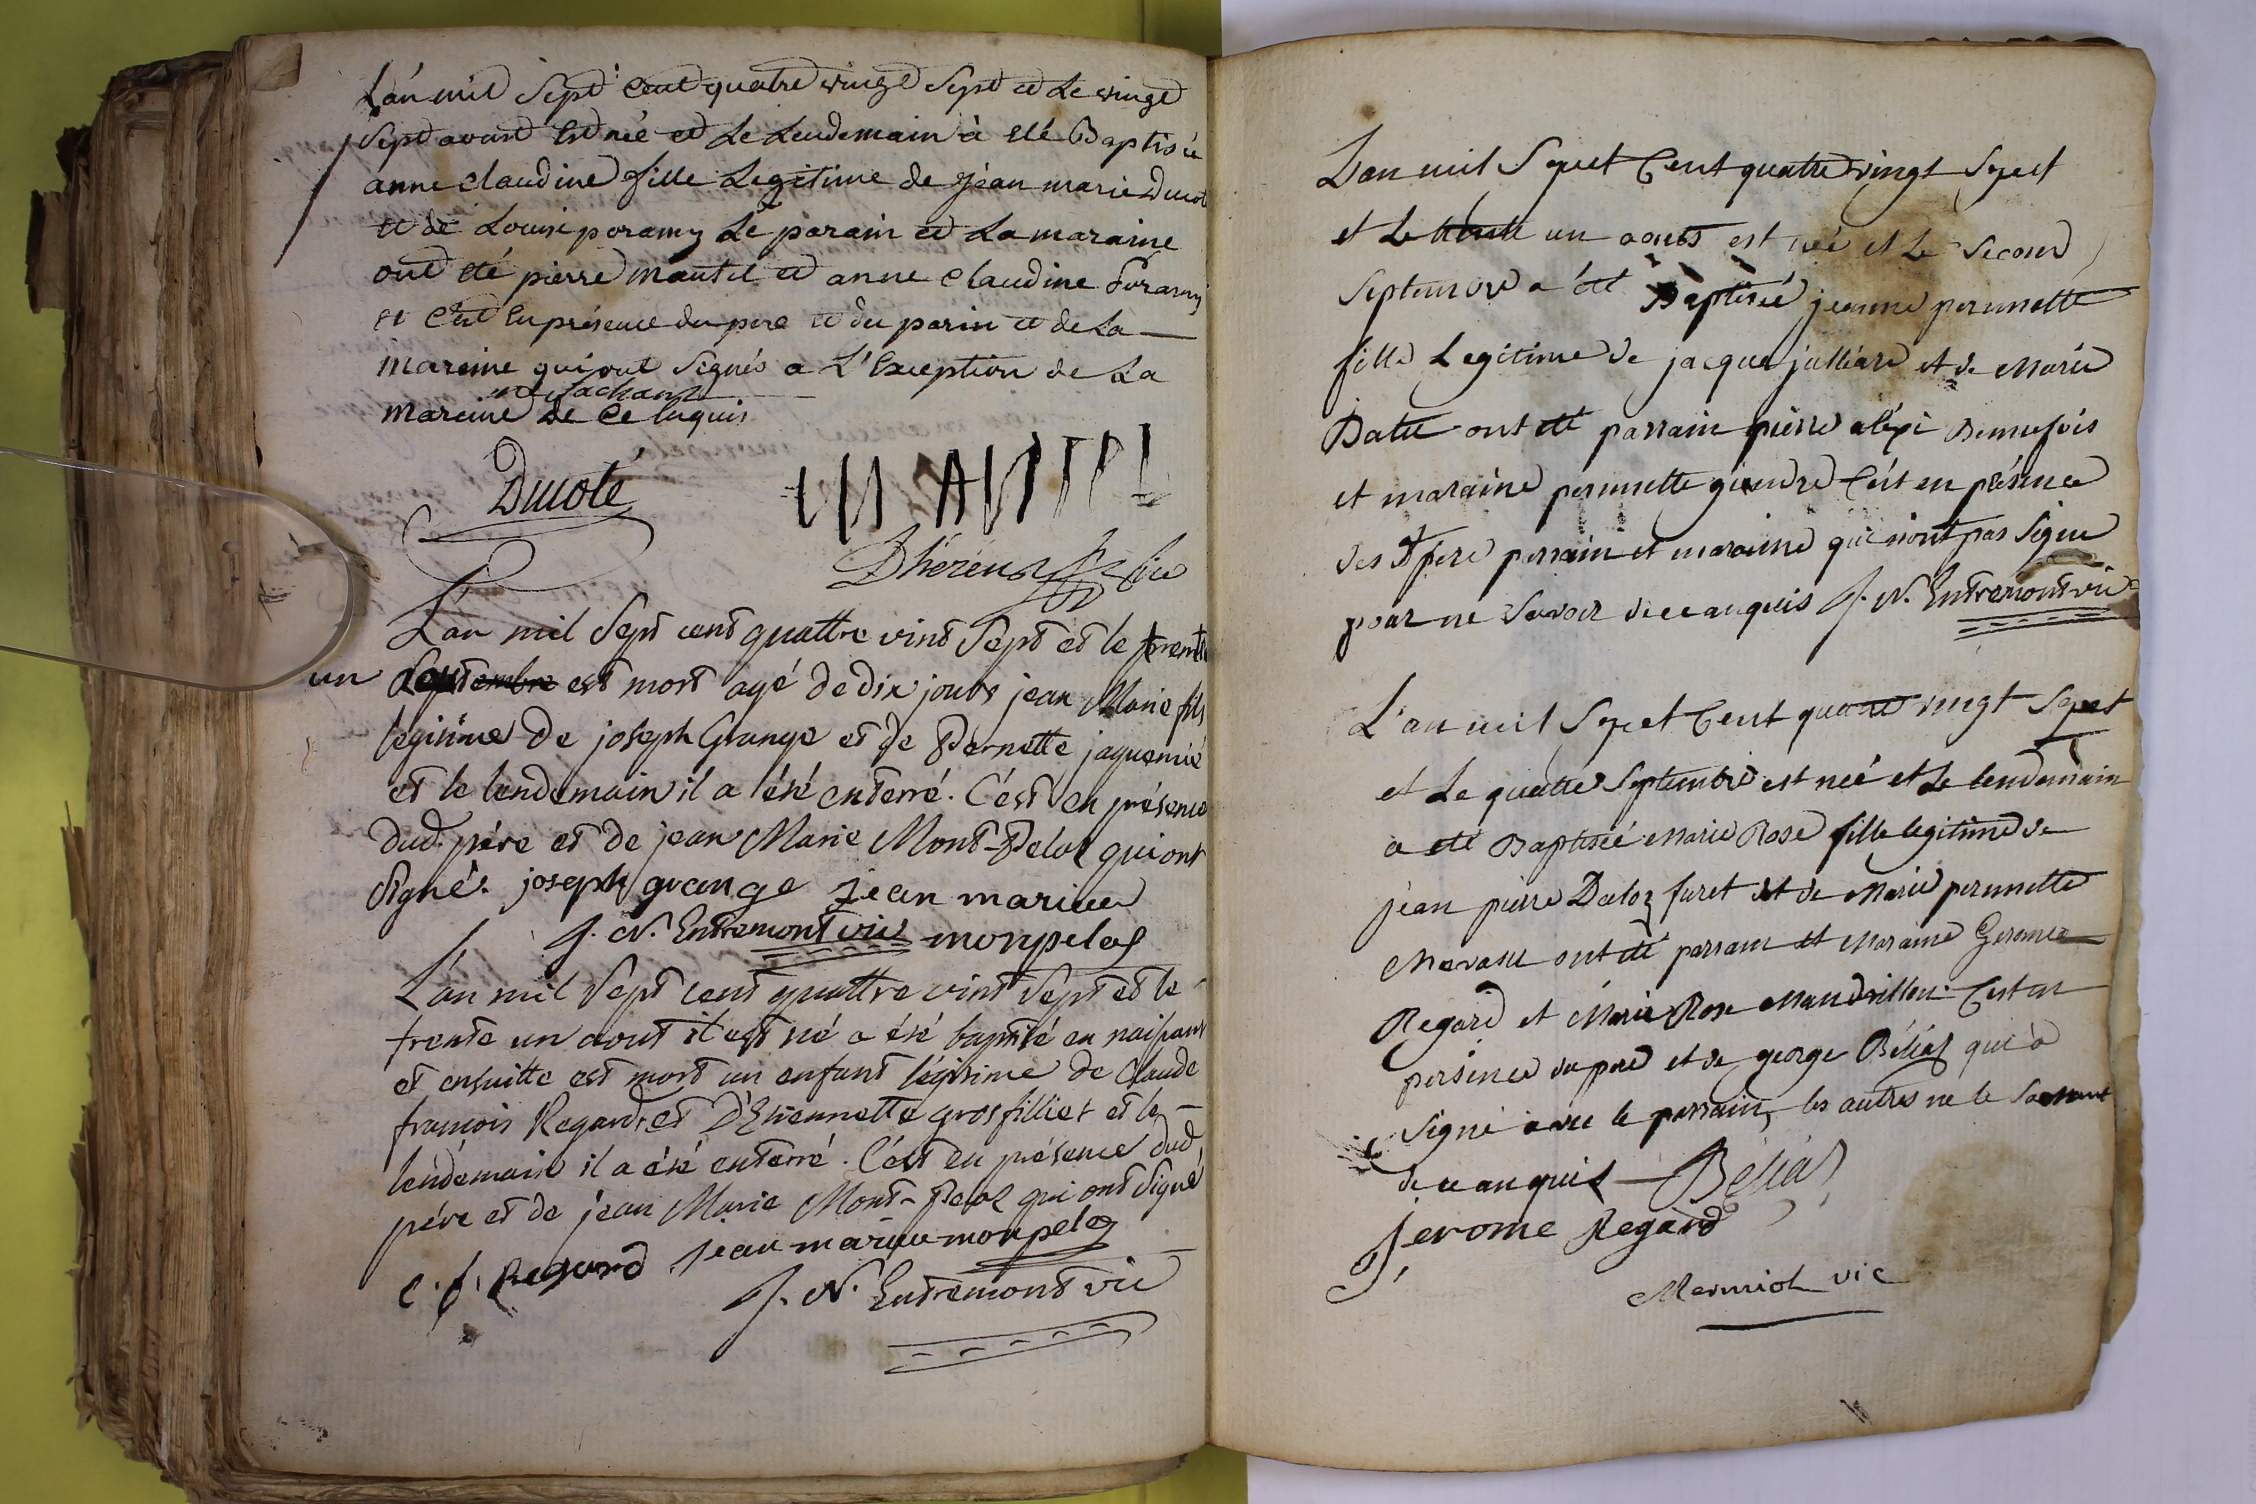 L'an mil Sept Cent quatre vingt Sept et Le vingt
Sept aoust Est née et Le Lendemain à été Baptisée
anne claudine fille Legitime de jéan marie Ducot
et de Louise poramy Le parain et La maraine
ont eté pierre mantel et anne claudine Poramy
et C'est En présence du pere et du parin et de La
maraine qui ont Signés a L'Exception de La
ne Sachant
maraine de Ce Enquis
Ducoté
MANTEL
L'an mil Sept cent quattre vint Sept et le trente
un est mort agé de dix jours jean Marie fils
legitime de joseph Grange et de Pernette jaquemié
et le lendemain il a été enterré. C'est en présence
dud. pére et de jean Marie Mont-Pelas qui ont
Signé. joseph grange jean mariee
J. N. Entremont vic monpelas
L'an mil Sept cent quattre vint Sept et le
trente un aout il est né a été baptisé en naissant
et ensuitte est mort un enfant légitime de Claude
francois Regard, et D'Etiennette grosfilliet et le
lendemain il a été enterré. C'est en présence dud.
pére et de jean Marie Mont-Pelas qui ont Signé
c. f. Regard jean mariee monpelas
J. N. Entremont vic
L'an mil Sepet Cent quatre vingt Sepet
et Le trente un aouts est née et Le Second
Septembre a été Baptisée jeanne pernnette
fille Legitime de jacque julliard et de Marie
ont eté parrain pierre aléxi Bennefois
et maraine pernnette C'ést en présence
des pere parrain et maraine qui n'ont pas Signe
pour ne Savoir de ce anquis J. N. Entremont vic
L'an mil Sepet Cent quatre vingt Sepet
et Le quatre Septembre est née et Le lendemain
a eté Baptisée Marie Rose fille legitime de
jean pierre Daloz furet et de Marie pernnette
ont eté parrain et Maraine Gerome
Regard et Marie Rose Mandrillon. C'est en
présence du pere et de george Béliaz qui à
Signé avec le parrain, les autres ne le Sachant
de ce anquis Béliaz
Jerome Regard
Mermiot vic